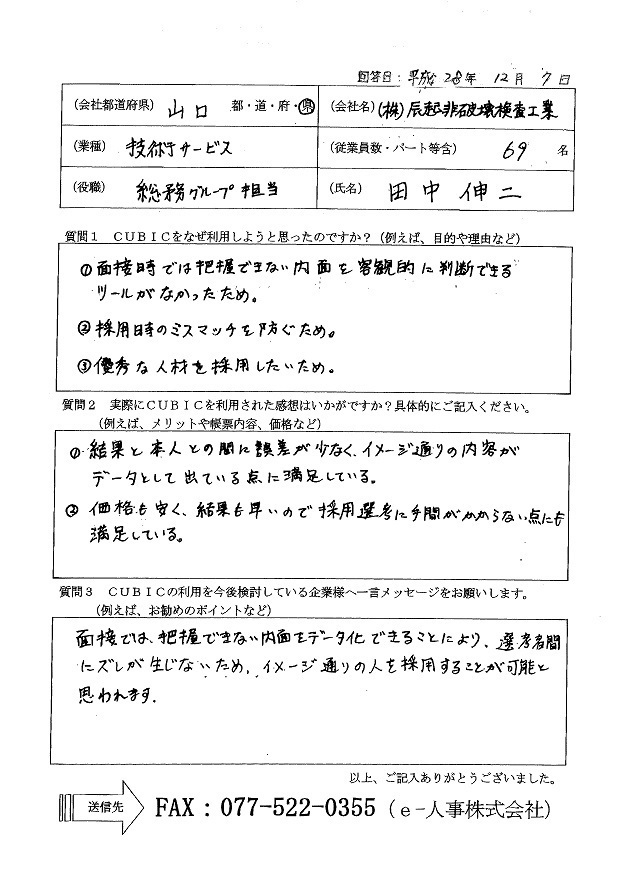 回答日：平成 28年 12月 7日
（会社都道府県） 山口 都・道・府・県
（会社名） (株)辰起非破壊検査工業
（業種） 技術サービス
（従業員数・パート等含） 69 名
（役職） 総務グループ担当
（氏名） 田中伸二
質問１　ＣＵＢＩＣをなぜ利用しようと思ったのですか？（例えば、目的や理由など）
①面接時では把握できない内面を客観的に判断できる
ツールがなかったため。
②採用時のミスマッチを防ぐため。
③優秀な人材を採用したいため。
質問２　実際にＣＵＢＩＣを利用された感想はいかがですか？具体的にご記入ください。
（例えば、メリットや帳票内容、価格など）
①結果と本人との間に誤差が少なく、イメージ通りの内容が
データとして出ている点に満足している。
②価格も安く、結果も早いので採用選考に手間がかからない点にも
満足している。
質問３　ＣＵＢＩＣの利用を今後検討している企業様へ一言メッセージをお願いします。
（例えば、お勧めのポイントなど）
面接では、把握できない内面をデータ化できることにより、選考者間
にズレが生じないため、イメージ通りの人を採用することが可能と
思われます。
以上、ご記入ありがとうございました。
送信先 FAX：077-522-0355（ｅ-人事株式会社）